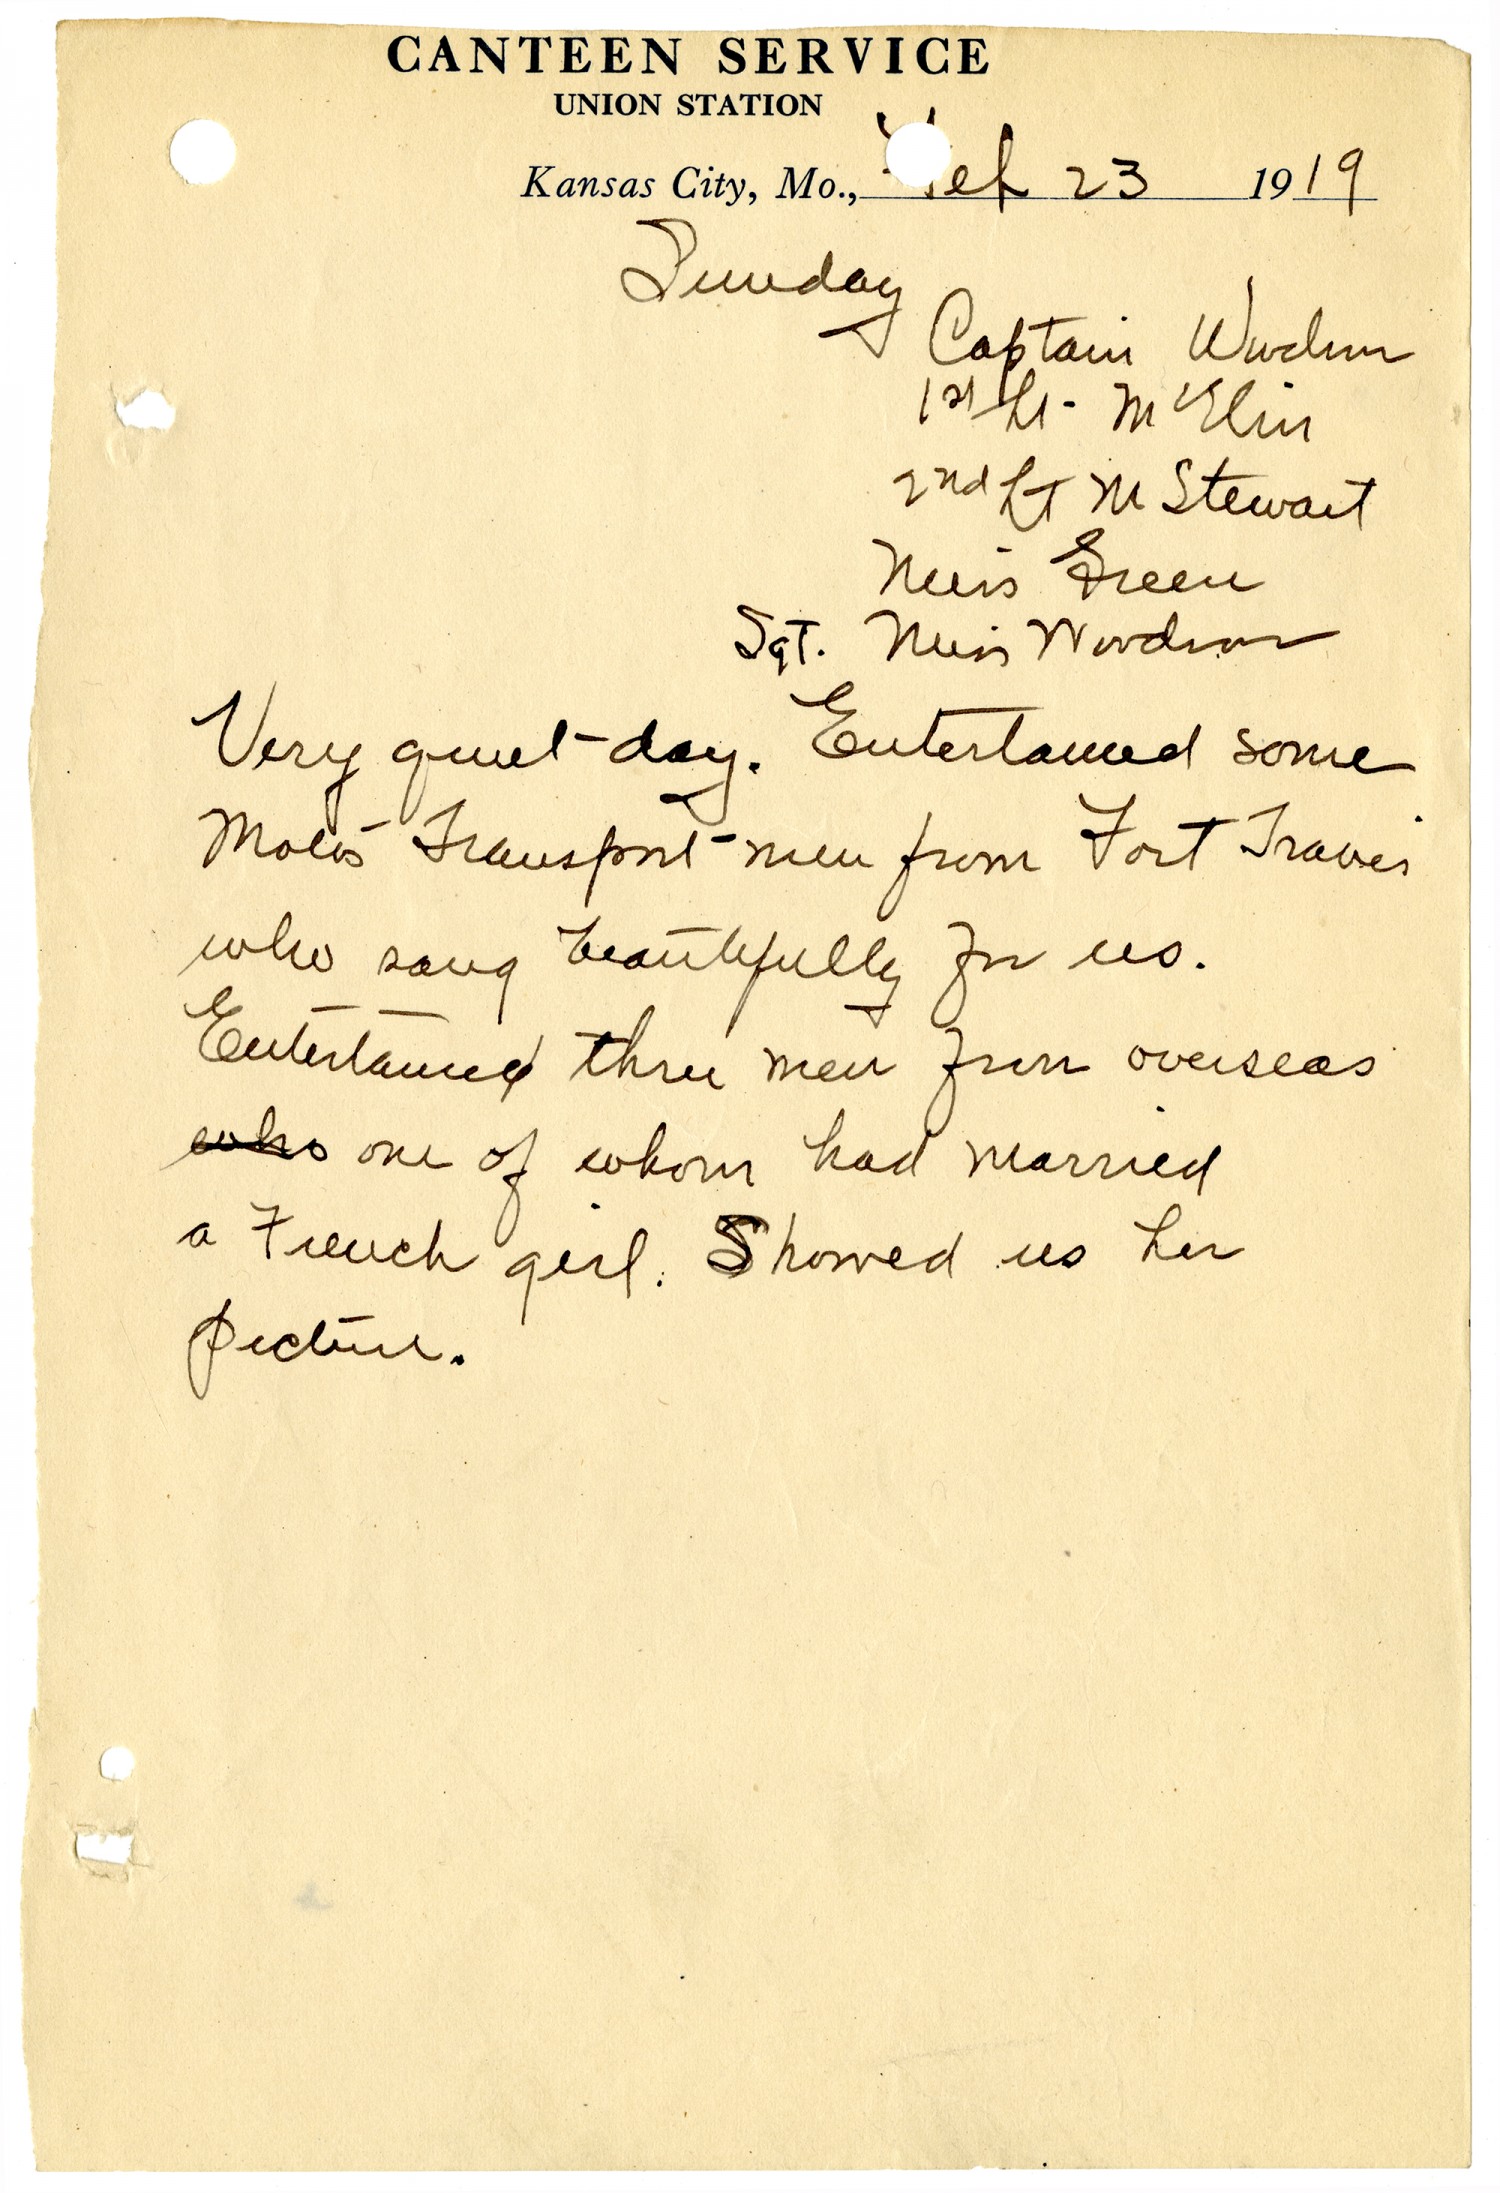 CANTEEN SERVICE
UNION STATION
Kansas City, Mo., Feb 23 1919
Sunday
Captain Woodson
1st Lt. McElin
2nd Lt M Stewart
Miss Green
Sgt. Miss Woodson
Very quiet day. Entertained some
Motor Transport men from Fort Travis
who sang beautifully for us.
Entertained three men from overseas
who one of whom had married
a French girl. Showed us her
picture.